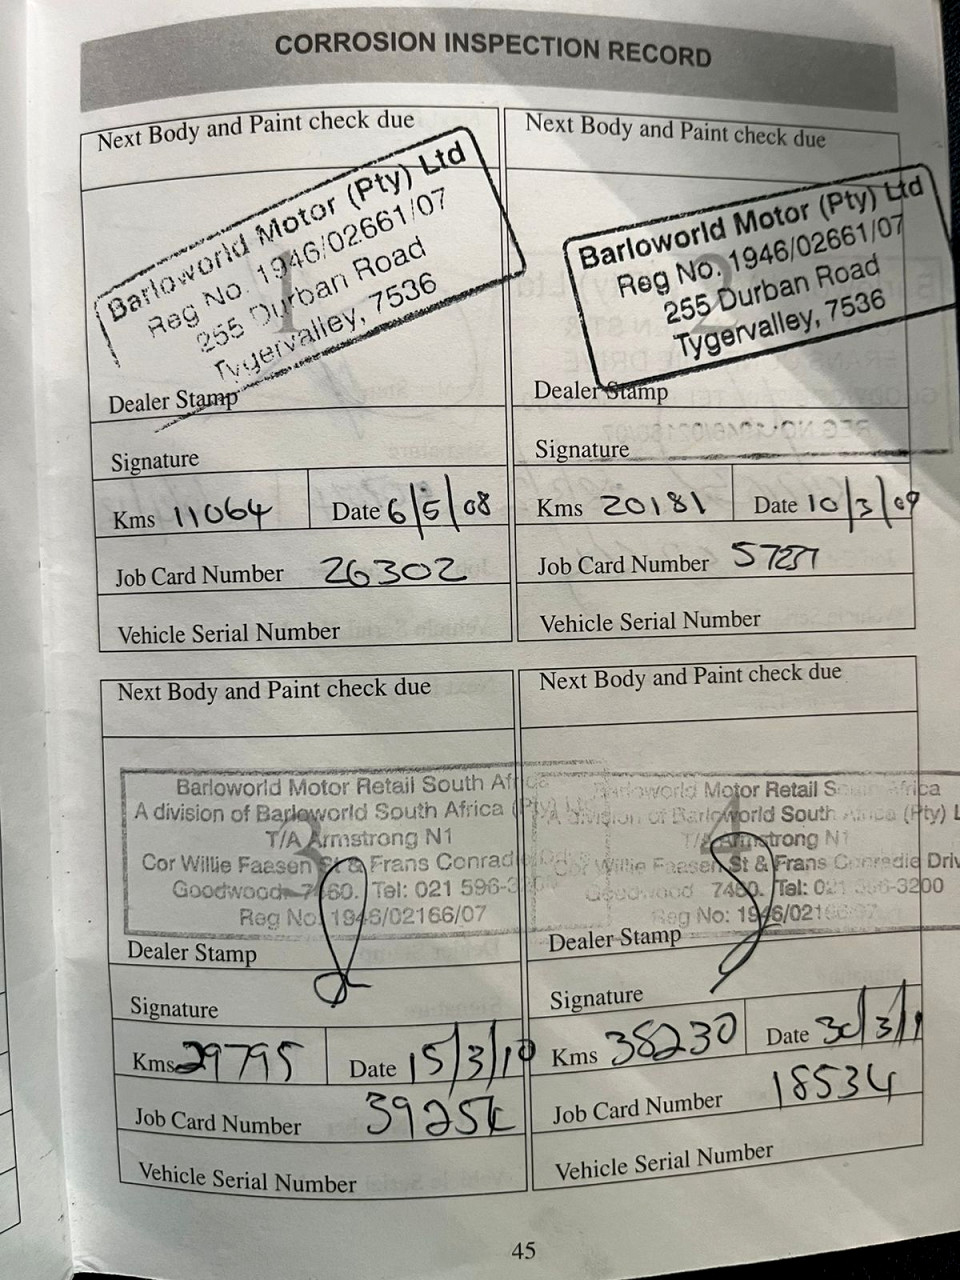 CORROSION INSPECTION RECORD
Next Body and Paint check due
1
Barloworld Motor (Pty) Ltd
Reg No. 1946/02661/07
255 Durban Road
Tygervalley, 7536
Dealer Stamp
Signature
Kms 11064 Date 6/5/08
Job Card Number 26302
Vehicle Serial Number
Next Body and Paint check due
2
Barloworld Motor (Pty) Ltd
Reg No. 1946/02661/07
255 Durban Road
Tygervalley, 7536
Dealer Stamp
Signature
Kms 20181 Date 10/3/09
Job Card Number
Vehicle Serial Number
Next Body and Paint check due
3
Barloworld Motor Retail South Africa
A division of Barloworld South Africa (Pty) Ltd
T/A Armstrong N1
Cor Willie Faasen St & Frans Conradie Drive
Goodwood 7460. Tel: 021 596-3200
Reg No: 1946/02166/07
Dealer Stamp
Signature
Kms 29795 Date 15/3/10
Job Card Number 39254
Vehicle Serial Number
Next Body and Paint check due
4
Barloworld Motor Retail South Africa
A division of Barloworld South Africa (Pty) L
T/A Armstrong N1
Cor Willie Faasen St & Frans Conradie Driv
Goodwood 7460. Tel: 021 596-3200
Reg No: 1946/02166/07
Dealer Stamp
Signature
Kms 38230 Date 30/3/1
Job Card Number 18534
Vehicle Serial Number
45